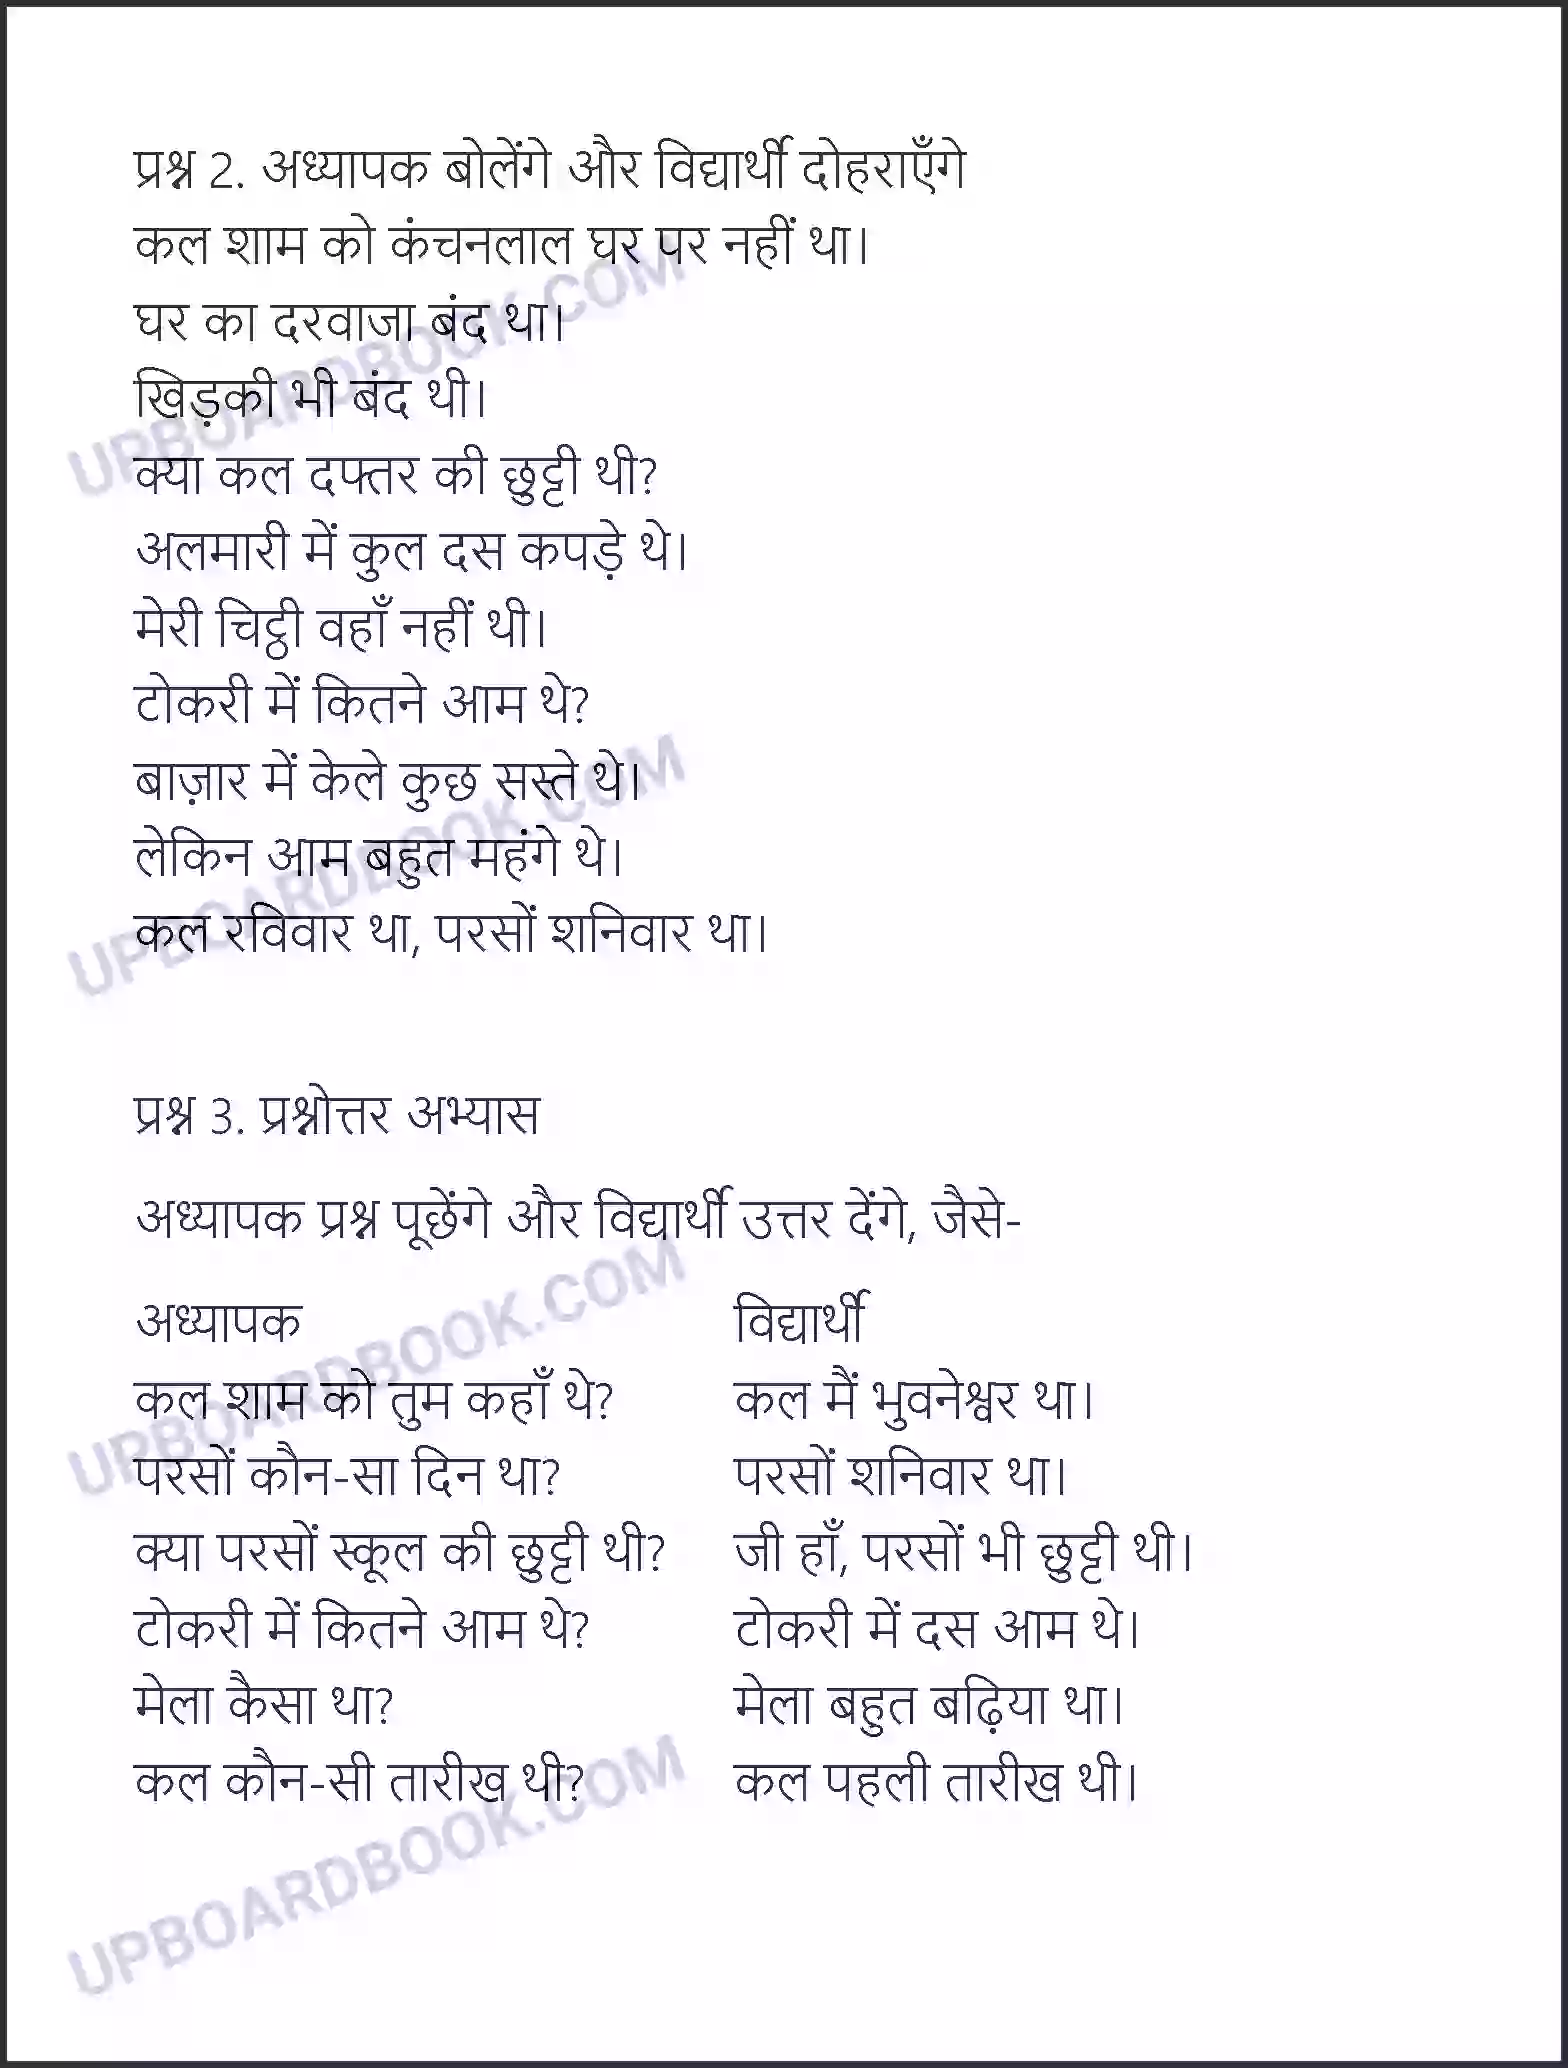 प्रश्न 2. अध्यापक बोलेंगे और विद्यार्थी दोहराएँगे
कल शाम को कंचनलाल घर पर नहीं था।
घर का दरवाजा बंद था।
खिड़की भी बंद थी।
क्या कल दफ्तर की छुट्टी थी?
अलमारी में कुल दस कपड़े थे।
मेरी चिट्ठी वहाँ नहीं थी।
टोकरी में कितने आम थे?
बाज़ार में केले कुछ सस्ते थे।
लेकिन आम बहुत महंगे थे।
कल रविवार था, परसों शनिवार था।
प्रश्न 3. प्रश्नोत्तर अभ्यास
अध्यापक प्रश्न पूछेंगे और विद्यार्थी उत्तर देंगे, जैसे-
अध्यापक विद्यार्थी
कल शाम को तुम कहाँ थे? कल मैं भुवनेश्वर था।
परसों कौन-सा दिन था? परसों शनिवार था।
क्या परसों स्कूल की छुट्टी थी? जी हाँ, परसों भी छुट्टी थी।
टोकरी में कितने आम थे? टोकरी में दस आम थे।
मेला कैसा था? मेला बहुत बढ़िया था।
कल कौन-सी तारीख थी? कल पहली तारीख थी।
UPBOARDBOOK.COM
UPBOARDBOOK.COM
UPBOARDBOOK.COM
UPBOARDBOOK.COM